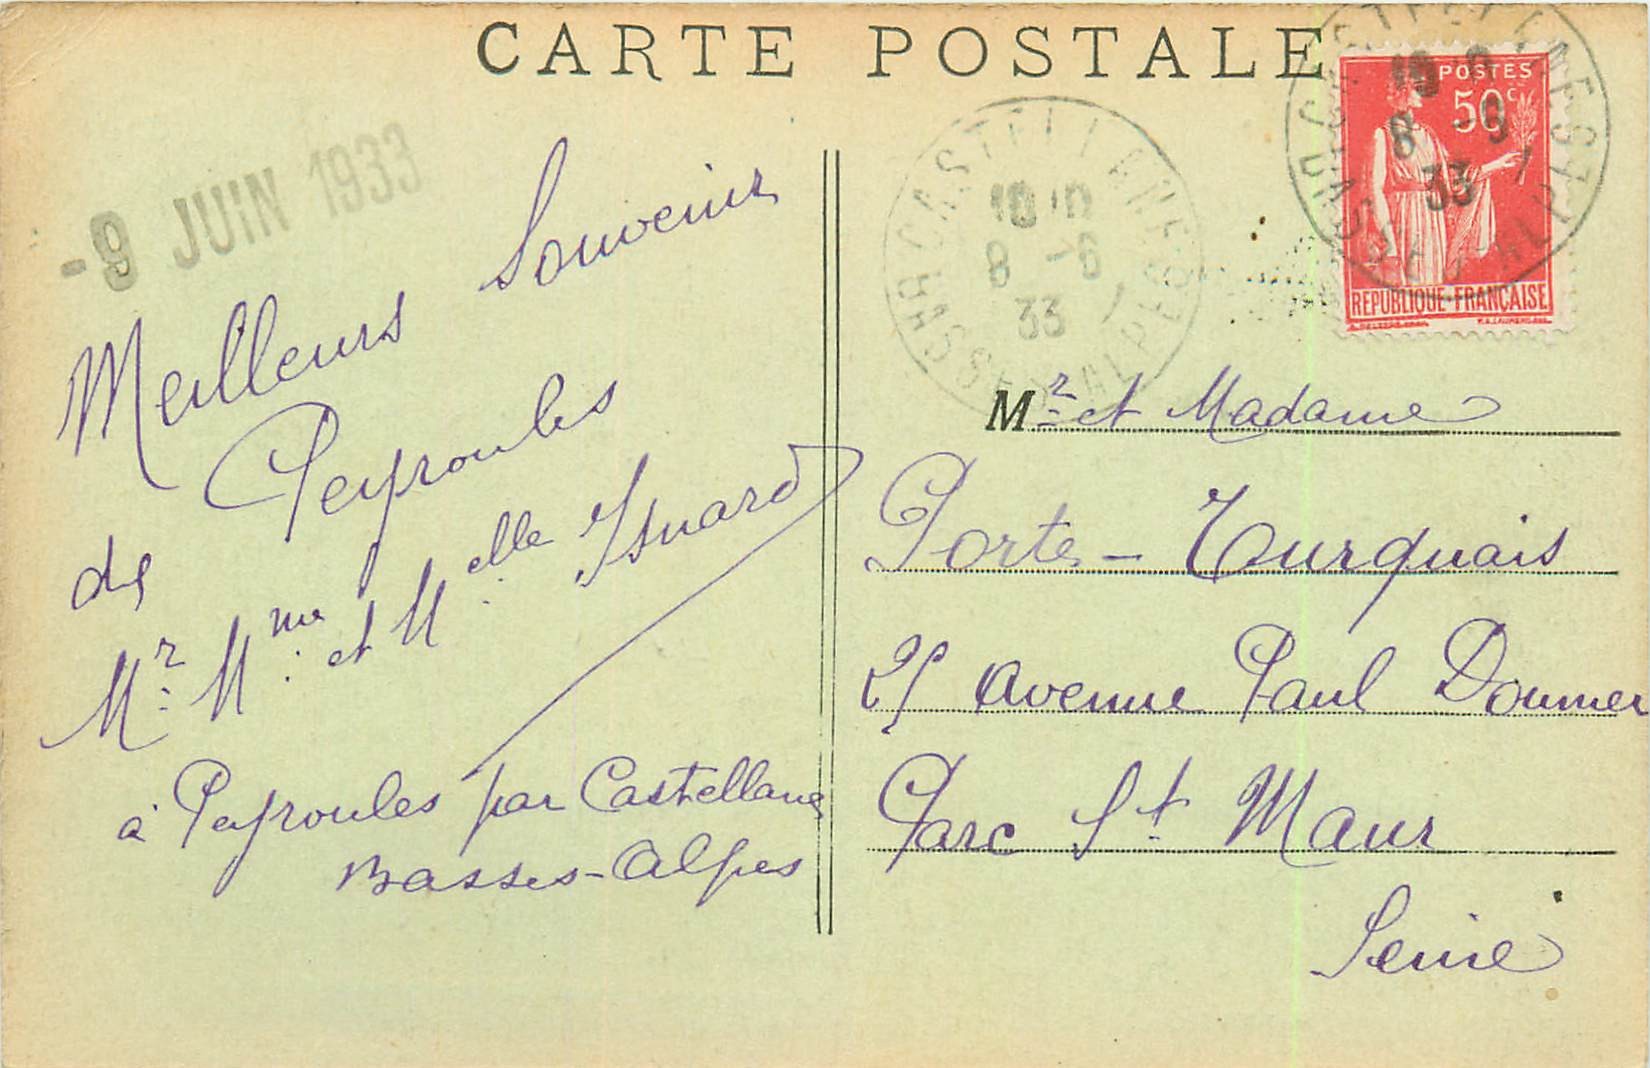 CARTE POSTALE
-9 JUIN 1933
Meilleurs Souvenirs
de Peyroules
Mr. Mme. et Melle. Isnard
à Peyroules par Castellane
Basses-Alpes
CASTELLANE
10 10
8 -6
33
BASSES-ALPES
CASTELLANE
8 -6
33
BASSES-ALPES
POSTES
50c
REPUBLIQUE-FRANÇAISE
Mr. et Madame
Porte-Turquais
25 Avenue Paul Doumer
Parc St. Maur
Seine